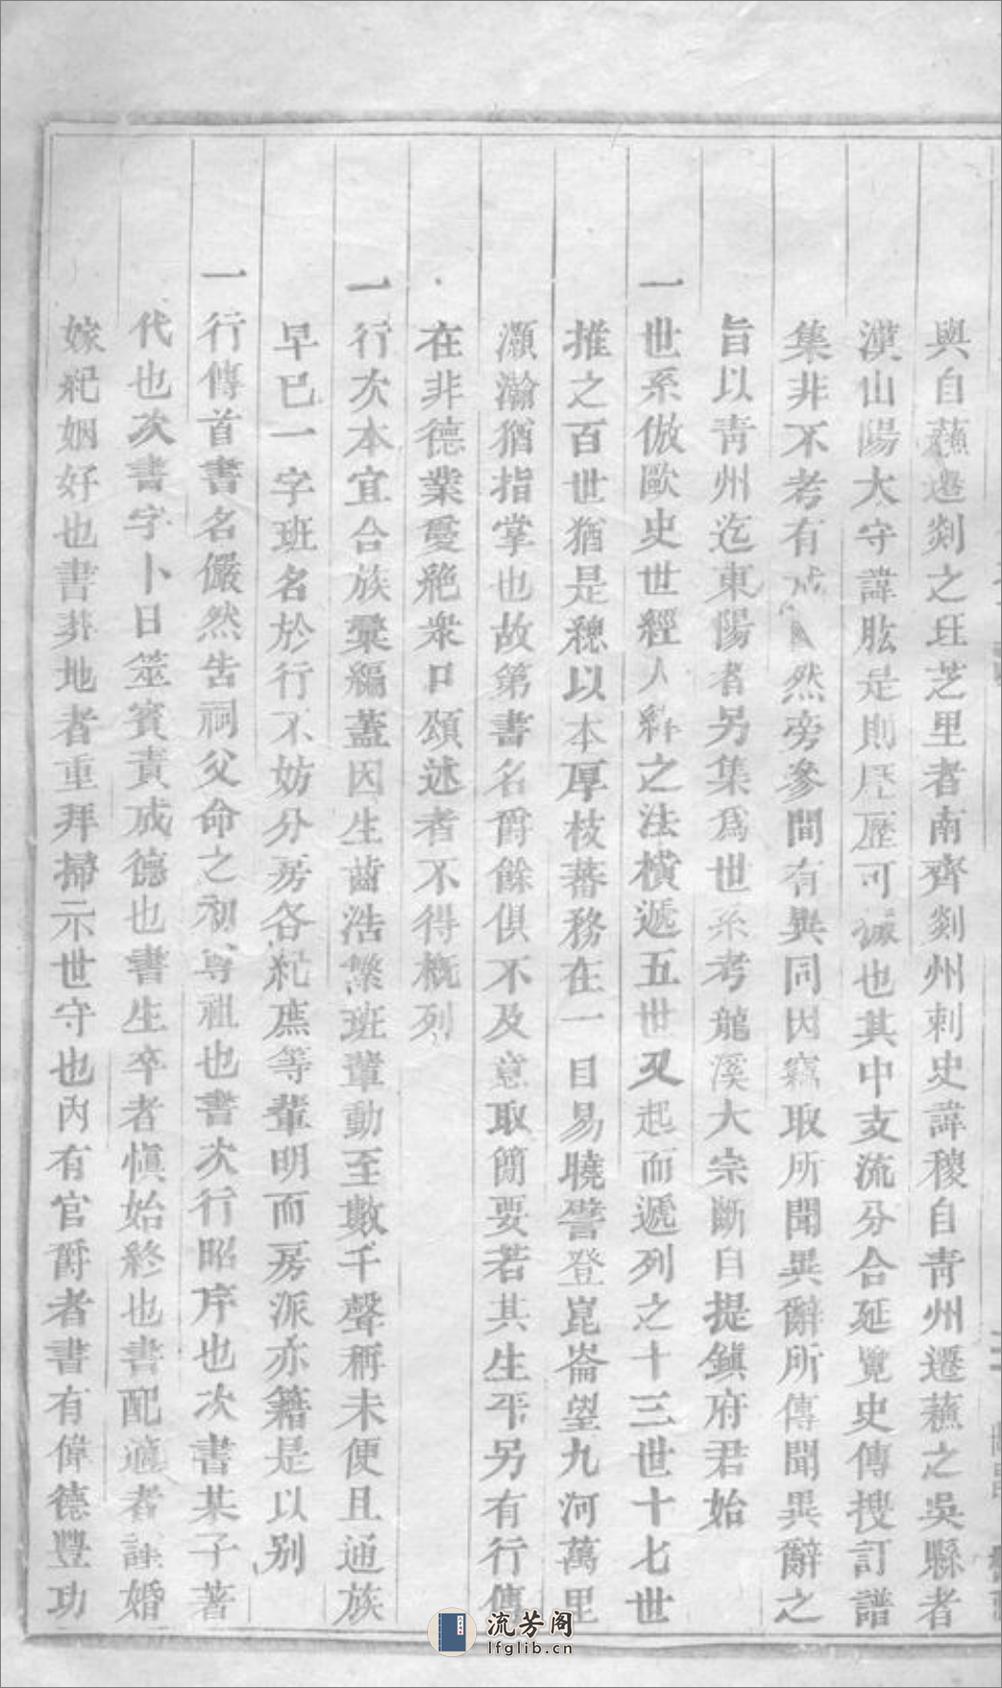 與自蘓遷剡之珏芝里者南齊剡州刺史諱稷自青州遷蘓之吳縣者
漢山陽太守諱肱是則歷可據也其中支流分合延覽史傳搜訂譜
集非不考有然旁參間有異同因竊取所聞異辭所傳聞異辭之
旨以青州迄東陽者另集爲世系考龍溪大宗斷自提鎮府君始
一世系倣歐史世經人緯之法橫遞五世又起而遞列之十三世十七世
推之百世猶是總以本厚枝蕃務在一目易曉譬登崑崙望九河萬里
灝瀚猶指掌也故第書名爵餘俱不及意取簡要若其生平另有行傳
在非德業夐絶衆口頌述者不得槪列
一行次本宜合族彙編蓋因生齒浩繁班輩動至數千聲稱未便且通族
早已一字班名於行不妨分房各紀庶等輩明而房派亦籍是以别
一行傳首書名儼然告祠父命之初尊祖也書次行昭序也次書某子著
代也次書字卜日筮賓責成德也書生卒者愼始終也書配適者謹婚
嫁祀姻好也書葬地者重拜掃示世守也內有官爵者書有偉德豐功
流芳阁
lfglib.cn